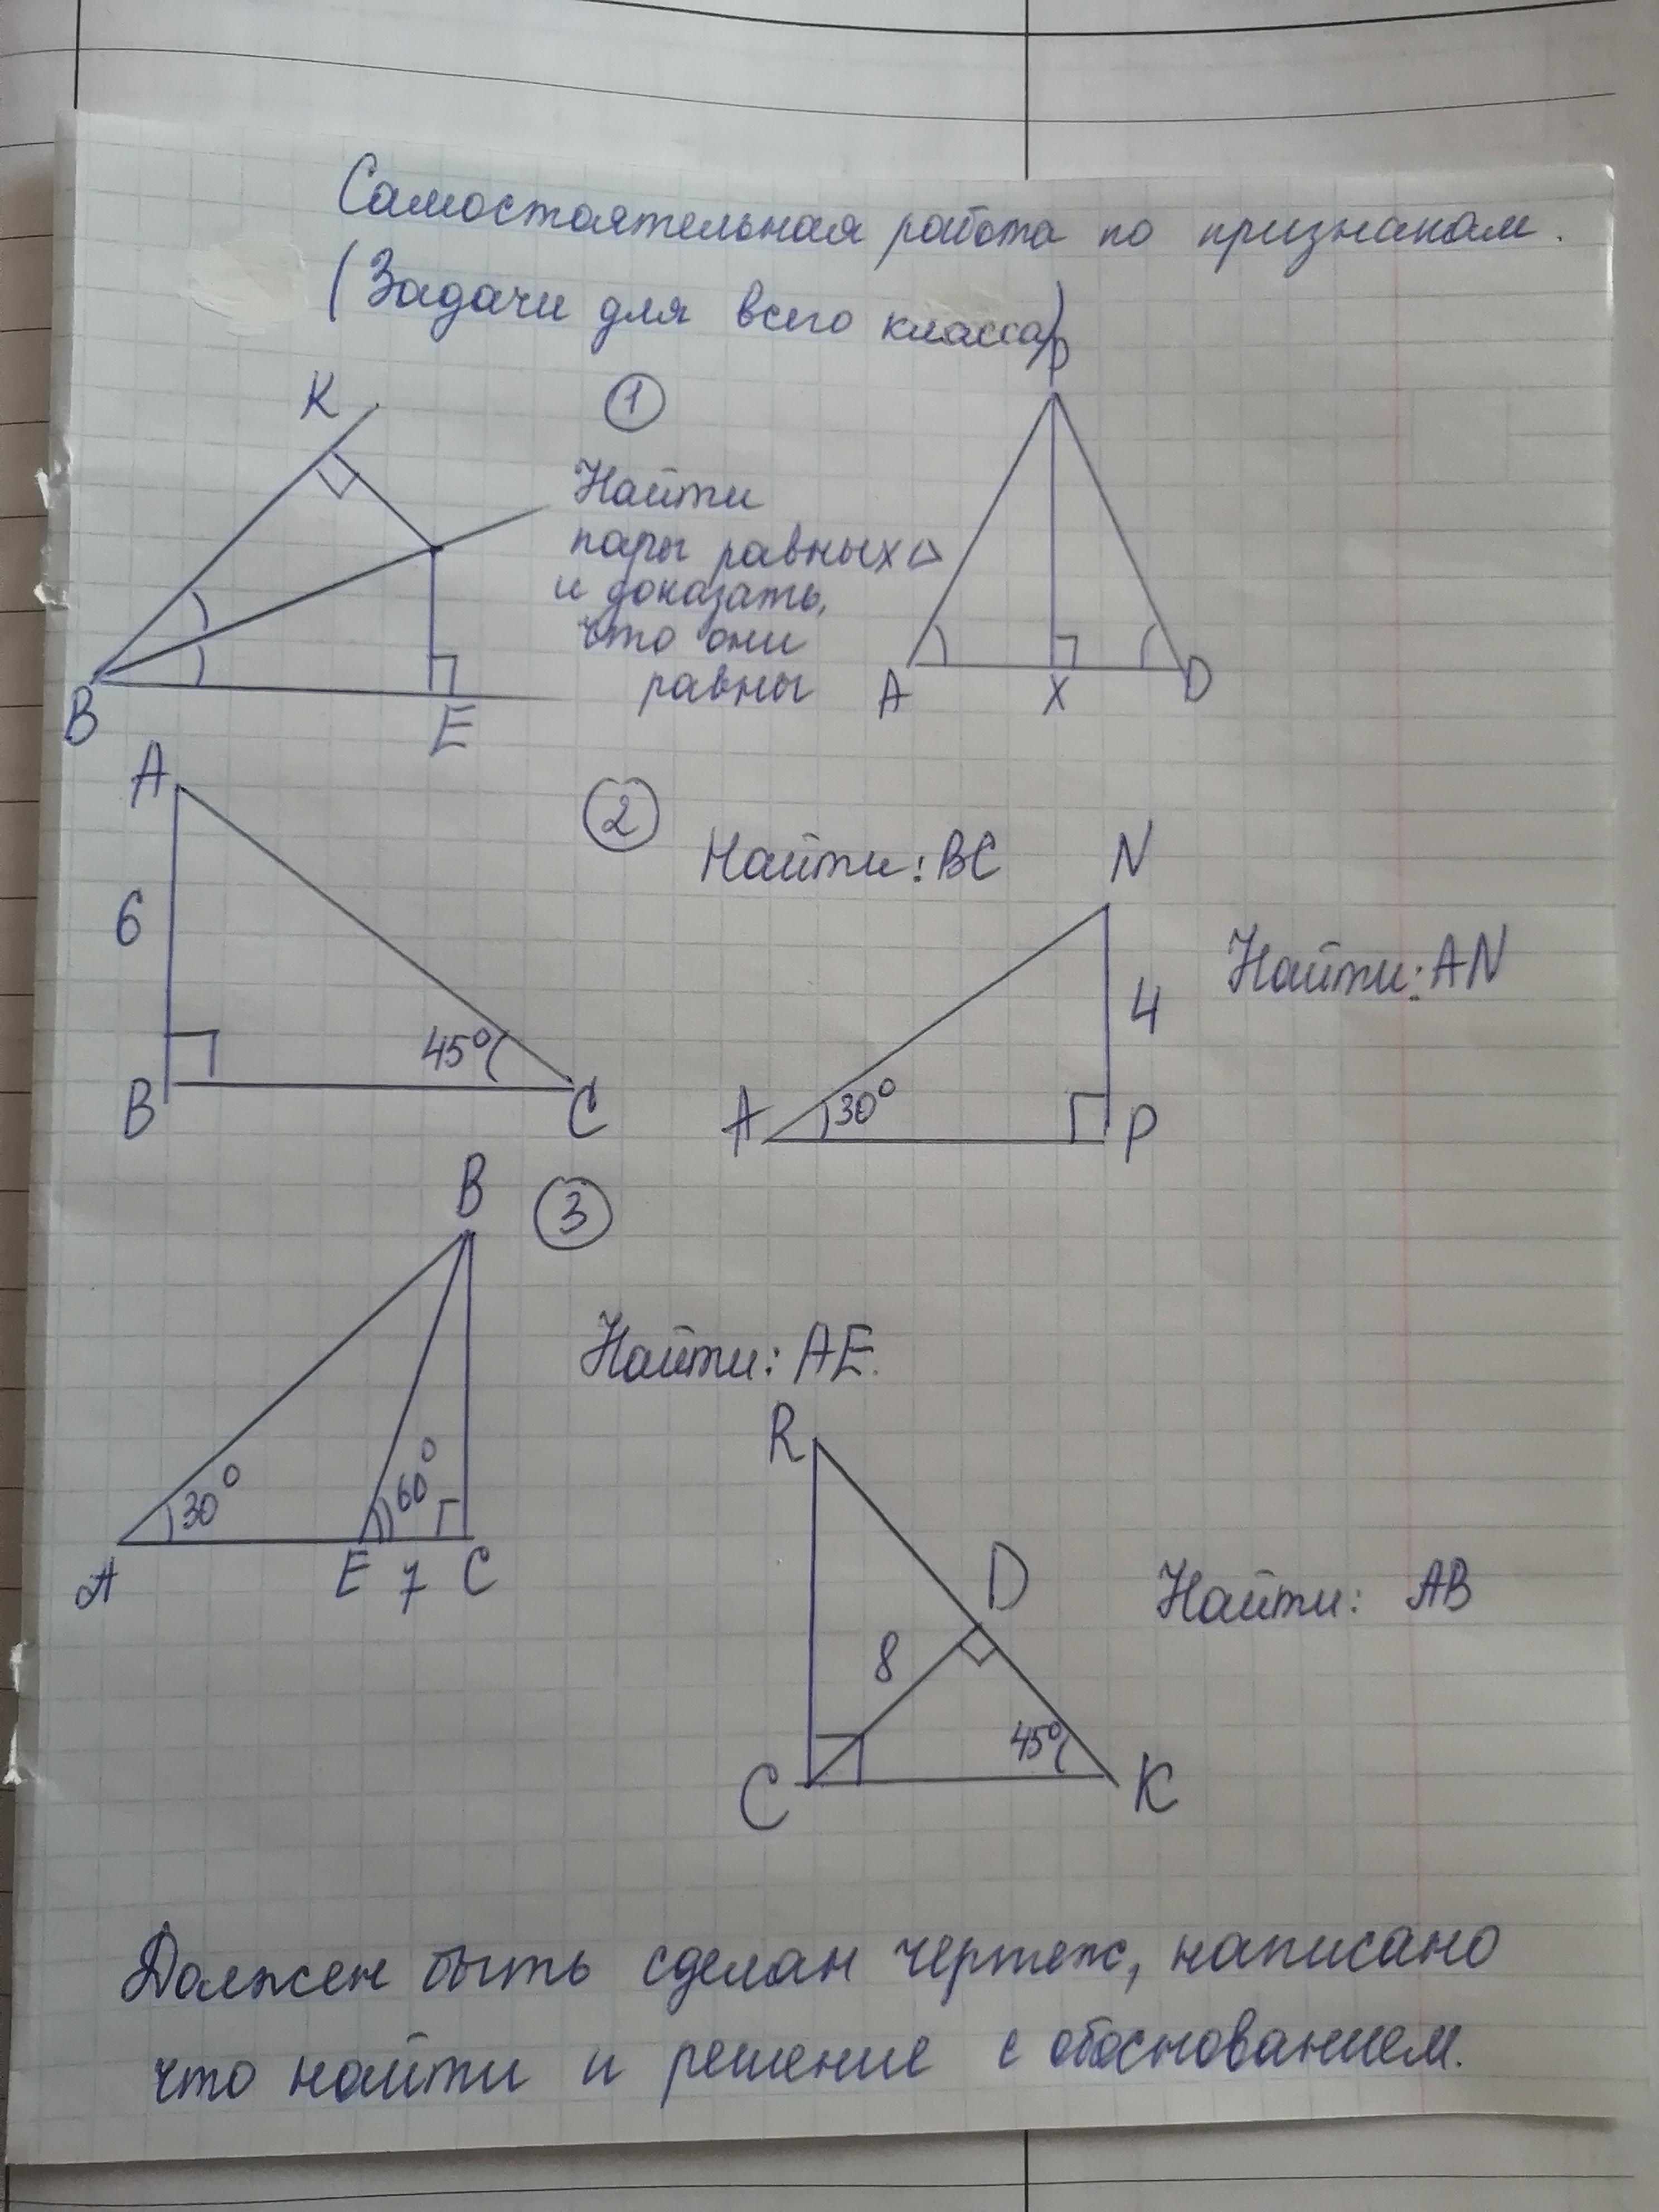 Самостоятельная работа по признакам.
(Задачи для всего класса)
K
①
P
Найти
пары равных △
и доказать,
что они
равны
B
E
A
X
D
A
②
Найти: BC
N
6
Найти: AN
4
45°
B
C
A
30°
P
B
③
Найти: AE.
R
30°
60°
D
A
E
7
C
Найти: AB
8
45°
C
K
Должен быть сделан чертеж, написано
что найти и решение с обоснованием.